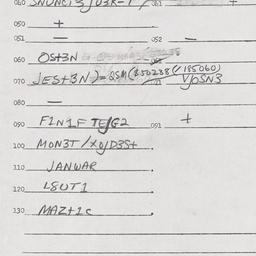 040 SNUNCI3JU3K-1 / 061 +
050 +
051 — 052 —
060 OST3N
070 JEST3N)=SSM(850238(/185060)
VJOSN3
080 —
090 F1N1F TEJG2 091 +
100 MON3T/XOJD3S+
110 JANWAR.
120 L8UT1.
130 MAZT1C.